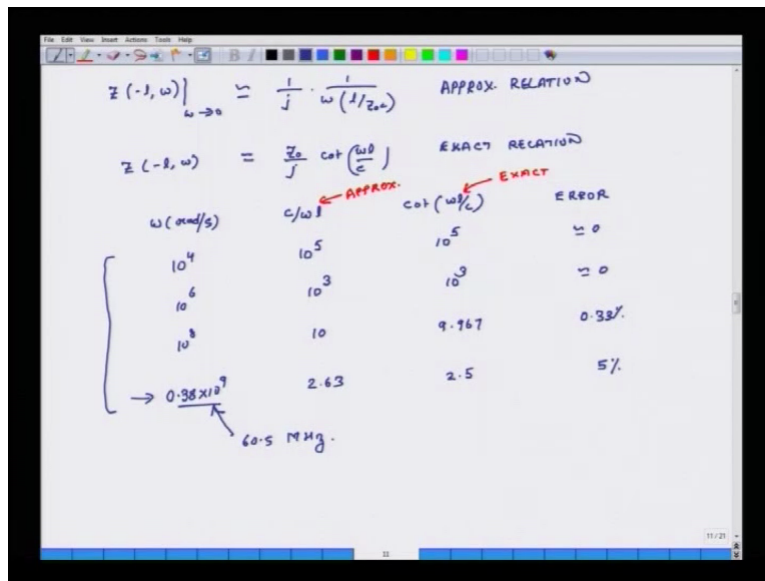 File Edit View Insert Actions Tools Help
z(-l, ω)|ω→0 ≃ 1/j · 1/ω(l/Z₀c) APPROX. RELATION
z(-l, ω) = Z₀/j cot(ωl/c) EXACT RELATION
ω(rad/s) c/ωl ← APPROX. cot(ωl/c) ← EXACT ERROR
10⁴ 10⁵ 10⁵ ≃ 0
10⁶ 10³ 10³ ≃ 0
10⁸ 10 9.967 0.33%
→ 0.38×10⁹ 2.63 2.5 5%
60.5 MHz.
11/21
11